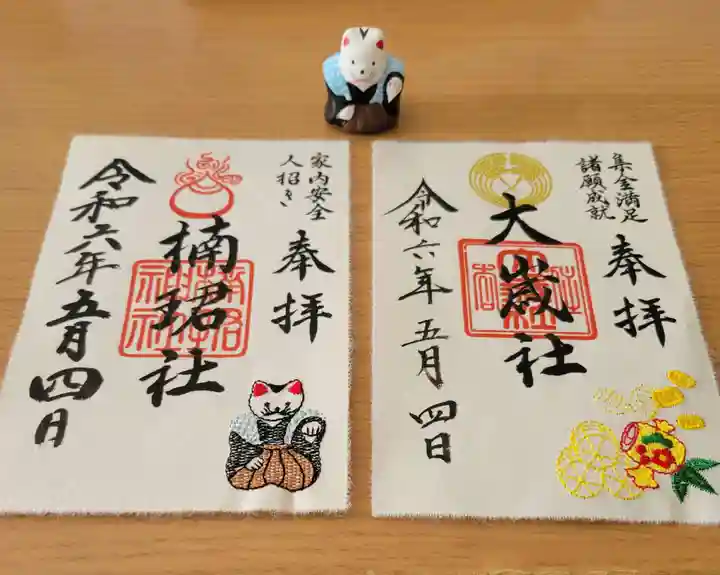 奉拝
集金満足
諸願成就
大歳社
令和六年五月四日
奉拝
家内安全
人招き
楠珺社
令和六年五月四日